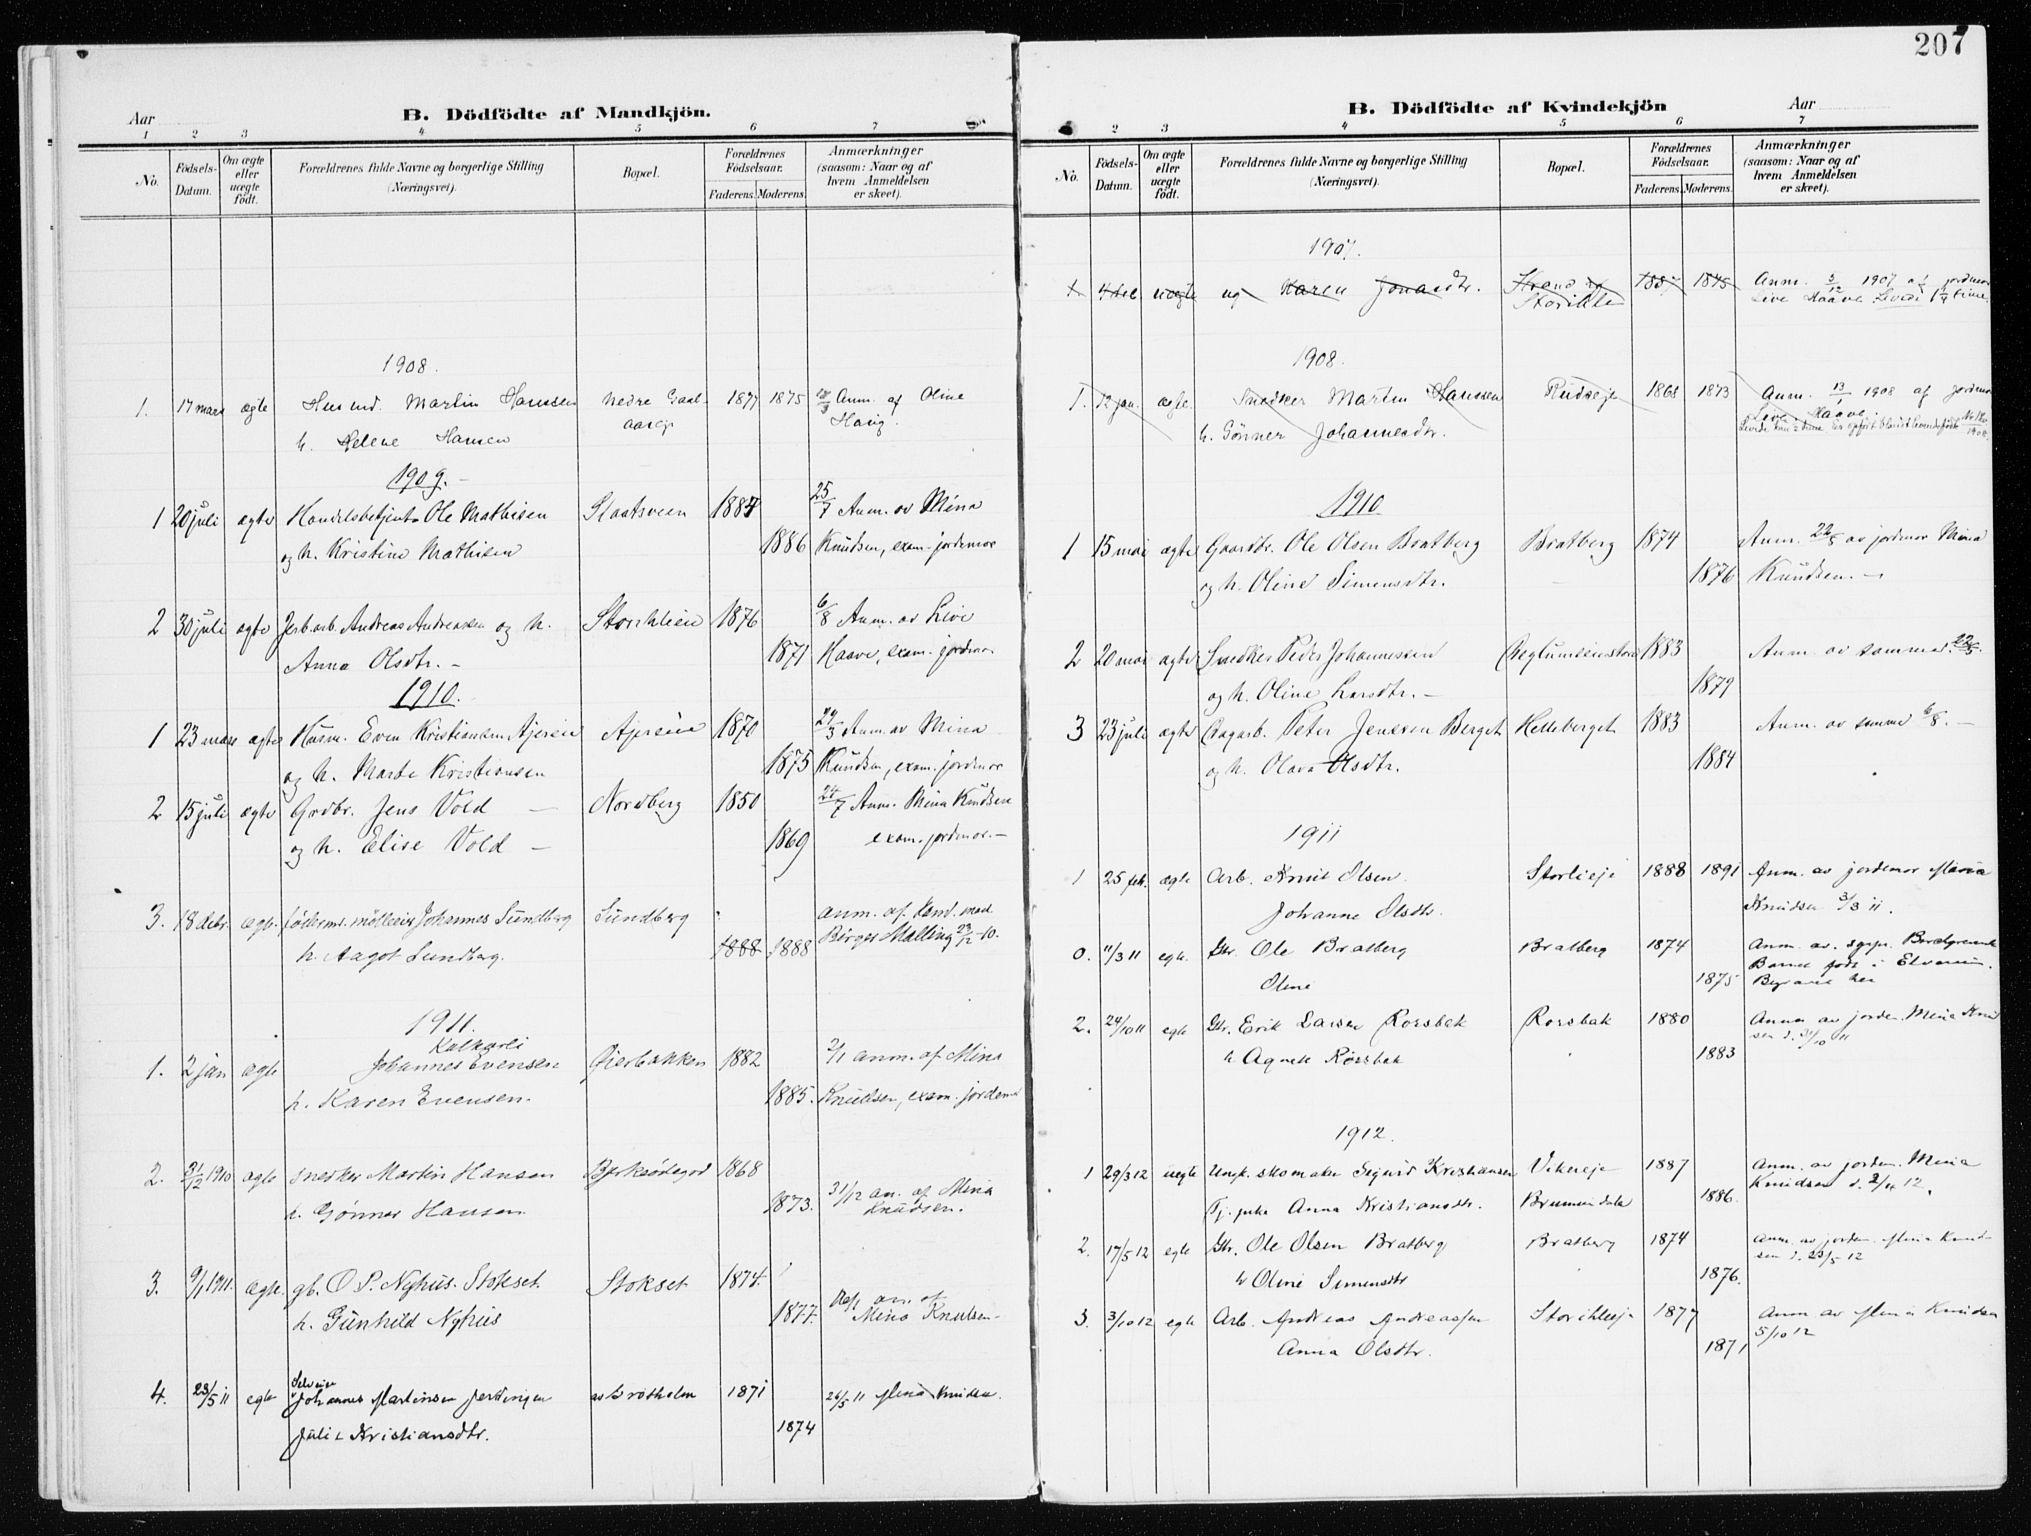 207
Aar
B. Dödfödte af Mandkjön.
1 2 3 4 5 6 7
No.
Fødsels-Datum.
Om ægte eller uægte født.
Forældrenes fulde Navne og borgerlige Stilling (Næringsvei).
Bopæl.
Forældrenes Fødselsaar.
Faderens. Moderens.
Anmærkninger (saasom: Naar og af hvem Anmeldelsen er skeet).
1908.
1. 17 mars ægte Husmd. Martin Hanssen Nedre Gaal- 1877 1875 Anm. af Oline
h. Helene Hansen
1909.
1 20 juli ægte Handelsbetjent Ole Mathisen Slaatsveen 1887 25/7 Anm. av Mina
og h. Kristine Mathisen 1886 Knudsen, exam. jordemor
2 30 juli ægte Jerb.arb. Andreas Andreassen og h. Storihleien 1876 6/8 Anm. av Live
Anna Olsdtr. - 1871 Haave, exam. jordmor
1910.
1 23 mars ægte Husm. Even Kristiansen Ajereie Ajereie 1870 24/3 Anm. av Mina
og h. Marte Kristiansen 1875 Knudsen, exam. jordmor
2 15 juli ægte Grdbr. Jens Vold - Nordberg 1850 24/7 Anm. Mina Knudsen
og h. Elise Vold - 1869 exam. jordmor. -
3. 18 debr. ægte. Johannes Sundberg Sundberg anm. af kand. med.
h. Aagot Sundberg. 1888 1888 Börger Malling 23/12-10.
1911.
1. 2 jan ægte Johannes Evensen Øierbakken 1882 2/1 anm. af Mina
h. Karen Evensen. 1885. Knudsen, exam. jordemor
2. 31/12 1910 ægte snedker Martin Hansen Bjerksödegrd 1868
h. Gönner Hansen 1873. 31/12 an. af Mina Knudsen.
3. 9/1 1911. ægte. gb. O. P. Nyhus. Stokset Stokset 1874.
h. Gunhild Nyhus 1877. an. af Mina Knudsen -
4. 23/5 11 egte Selveier Johannes Martinsen 1871 26/5 11 Mina Knudsen.
Julie Kristiansdtr. 1874
B. Dödfödte af Kvindekjön
Aar
2 3 4 5 6 7
No.
Fødsels-Datum.
Om ægte eller uægte født.
Forældrenes fulde Navne og borgerlige Stilling (Næringsvei).
Bopæl.
Forældrenes Fødselsaar.
Faderens. Moderens.
Anmærkninger (saasom: Naar og af hvem Anmeldelsen er skeet).
1907.
1. 4 dec. uægte ug Karen Jonasdtr. Strand 1887 1875 Anm. 5/12 1907 af jordmor
Storihle Live Haave. Levet 1 1/4 time.
1908.
1. 12 jan. ægte. Snedker Martin Hanssen Rudseje 1868 1873 Anm. 13/1 1908 af jordmor
h. Gönner Johannesdtr. Live Haave.
1910
1 15 mai ægte Gaardbr. Ole Olsen Bratberg Bratberg 1874 Anm. 22/5 av jordmor Mina
og h. Oline Simensdtr. 1876 Knudsen. -
2 20 mai ægte Snedker Peder Johannessen 1883 Anm. av samme. 22/5
og h. Oline Larsdtr. - 1879
3 23 juli ægte Dagarb. Peter Jenssen Berget Helleberget 1883 Anm. av samme 6/8. -
og h. Olava Olsdtr. 1884
1911
1 25 feb. ægte Arb. Knut Olsen. Storlieje 1888 1891 Anm. av jordemor Maria
Johanne Olsdtr. Knudsen 3/3 11.
0. 11/3 11 egte. Gbr. Ole Bratberg Bratberg 1874 Anm. av. sgpr.
Oline 1875 Barnet født i Elverum. Begravet her
2. 24/10 11 egte Gbr. Erik Larsen Rorsbak Rorsbak 1880 Anm. av jordm. Mina Knud
h Agnete Rørsbak 1883 sen d. 24/10 11
1912.
1 29/3 12 uegte Ungk. skomaker Sigurd Kristiansen Vikneje 1887 Anm. av jordm. Mina
Tj. pike Anna Kristiansdtr. Brumunddalen 1886. Knudsen d. 2/4 12.
2. 17/5 12 egte Gbr. Ole Olsen Bratberg Bratberg 1874 Anm. av jordm. Mina Knud-
h Oline Simensdtr 1876. sen d. 23/5 12
3. 3/10 12 egte Arb. Andreas Andreassen Storihleje 1877 Anm av Mina Knudsen
Anna Olsdtr. 1871 5/10 12